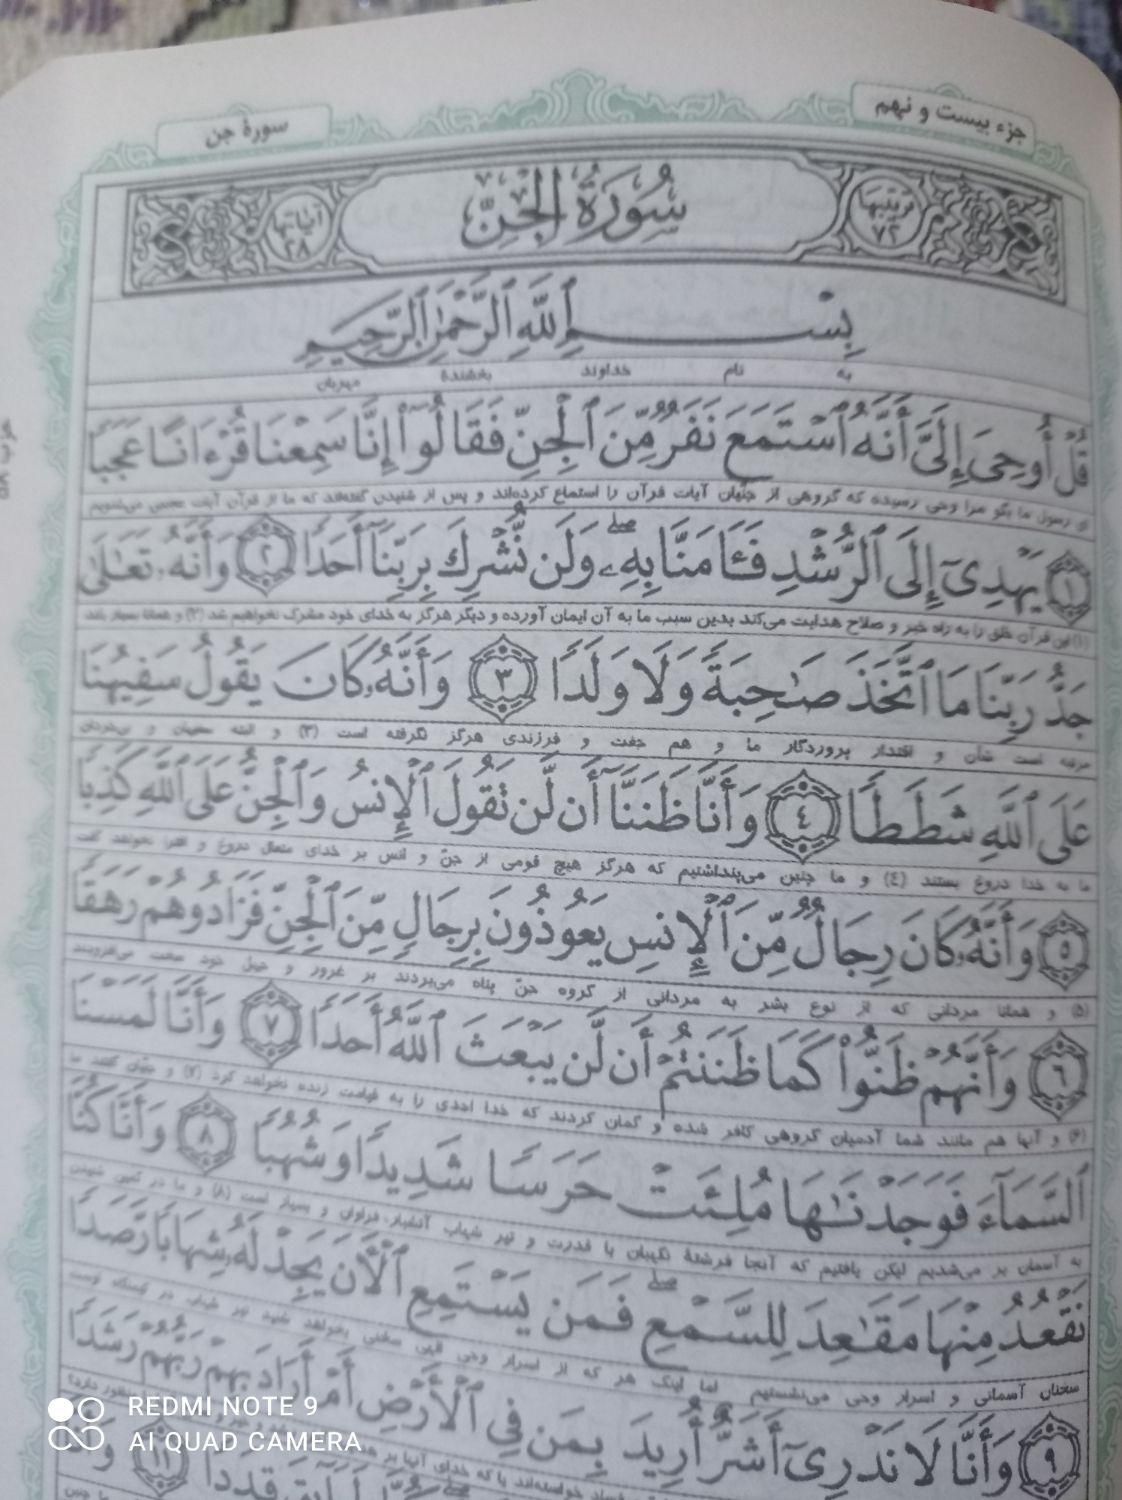 جزء بیست و نهم
سورهٔ جن
ترتیبها ۷۲
سُورَةُ الْجِنِّ
آیاتها ۲۸
بِسْمِ ٱللَّهِ ٱلرَّحْمَٰنِ ٱلرَّحِيمِ
به نام خداوند بخشندهٔ مهربان
قُلْ أُوحِىَ إِلَىَّ أَنَّهُ ٱسْتَمَعَ نَفَرٌ مِّنَ ٱلْجِنِّ فَقَالُوٓا۟ إِنَّا سَمِعْنَا قُرْءَانًا عَجَبًا
ای رسول ما بگو مرا وحی رسیده که گروهی از جنّیان آیات قرآن را استماع کرده‌اند و پس از شنیدن گفته‌اند که ما از قرآن آیات عجیبی می‌شنویم
﴿١﴾ يَهْدِىٓ إِلَى ٱلرُّشْدِ فَـَٔامَنَّا بِهِۦ ۖ وَلَن نُّشْرِكَ بِرَبِّنَآ أَحَدًا ﴿٢﴾ وَأَنَّهُۥ تَعَٰلَىٰ
(۱) این قرآن خلق را به راه خیر و صلاح هدایت می‌کند بدین سبب ما به آن ایمان آورده و دیگر هرگز به خدای خود مشرک نخواهیم شد (۲) و همانا بسیار بلند
جَدُّ رَبِّنَا مَا ٱتَّخَذَ صَٰحِبَةً وَلَا وَلَدًا ﴿٣﴾ وَأَنَّهُۥ كَانَ يَقُولُ سَفِيهُنَا
مرتبه است شأن و اقتدار پروردگار ما و هم جفت و فرزندی هرگز نگرفته است (۳) و البته سفیهان و بی‌خردان
عَلَى ٱللَّهِ شَطَطًا ﴿٤﴾ وَأَنَّا ظَنَنَّآ أَن لَّن تَقُولَ ٱلْإِنسُ وَٱلْجِنُّ عَلَى ٱللَّهِ كَذِبًا
ما به خدا دروغ بستند (٤) و ما چنین می‌پنداشتیم که هرگز هیچ قومی از جنّ و انس بر خدای متعال دروغ و افترا نخواهد گفت
﴿٥﴾ وَأَنَّهُۥ كَانَ رِجَالٌ مِّنَ ٱلْإِنسِ يَعُوذُونَ بِرِجَالٍ مِّنَ ٱلْجِنِّ فَزَادُوهُمْ رَهَقًا
(۵) و همانا مردانی که از نوع بشر به مردانی از گروه جنّ پناه می‌بردند بر غرور و جهل خود سخت می‌افزودند
﴿٦﴾ وَأَنَّهُمْ ظَنُّوا۟ كَمَا ظَنَنتُمْ أَن لَّن يَبْعَثَ ٱللَّهُ أَحَدًا ﴿٧﴾ وَأَنَّا لَمَسْنَا
(۶) و آنها هم مانند شما آدمیان گروهی کافر شده و گمان کردند که خدا احدی را به قیامت زنده نخواهد کرد (۷) و جنّیان گفتند ما
ٱلسَّمَآءَ فَوَجَدْنَٰهَا مُلِئَتْ حَرَسًا شَدِيدًا وَشُهُبًا ﴿٨﴾ وَأَنَّا كُنَّا
به آسمان بر می‌شدیم لیکن یافتیم که آنجا فرشتهٔ نگهبان با قدرت و تیر شهاب آتشبار فراوان و بسیار است (۸) و ما در کمین شنیدن
نَقْعُدُ مِنْهَا مَقَٰعِدَ لِلسَّمْعِ ۖ فَمَن يَسْتَمِعِ ٱلْـَٔانَ يَجِدْ لَهُۥ شِهَابًا رَّصَدًا
سخنان آسمانی و اسرار وحی می‌نشستیم اما اینک هر که از اسرار وحی الهی سخنی بخواهد شنید تیر شهاب در کمینگاه اوست
﴿٩﴾ وَأَنَّا لَا نَدْرِىٓ أَشَرٌّ أُرِيدَ بِمَن فِى ٱلْأَرْضِ أَمْ أَرَادَ بِهِمْ رَبُّهُمْ رَشَدًا
REDMI NOTE 9
AI QUAD CAMERA